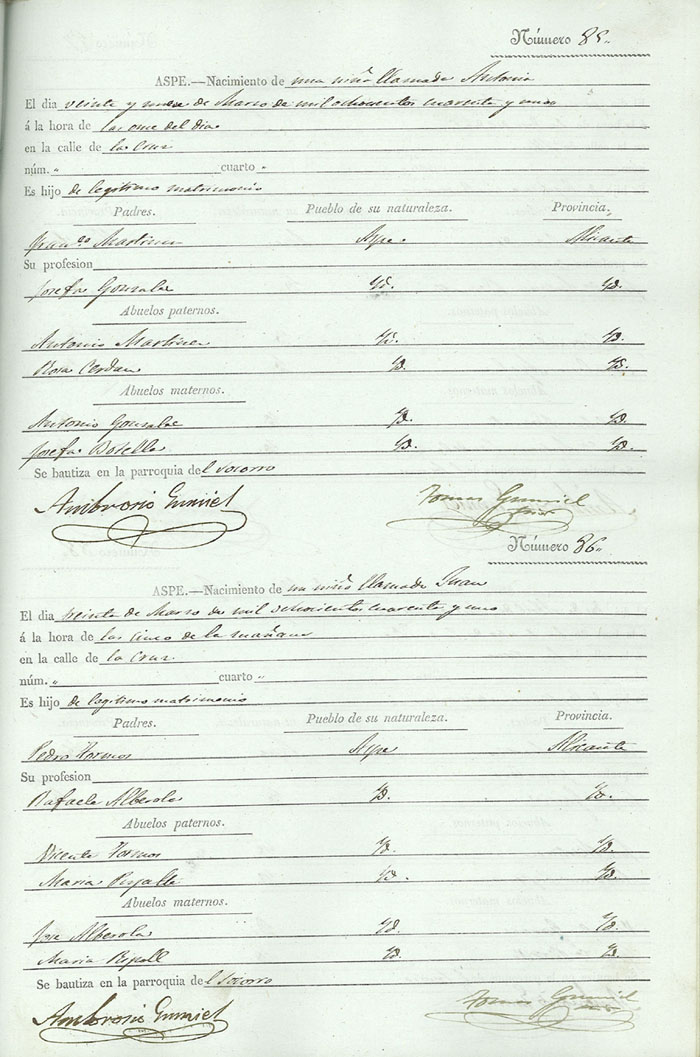 Número 85.
ASPE.—Nacimiento de una niña llamada Antonia
El dia veinte y nueve de Marzo de mil ochocientos cuarenta y uno
á la hora de las once del dia
en la calle de la Cruz
núm. " cuarto "
Es hijo de legitimo matrimonio
Padres. Pueblo de su naturaleza. Provincia.
Fran.co Martinez Aspe. Alicante
Su profesion
Josefa Gonzalez Yd. Yd.
Abuelos paternos.
Antonio Martinez Yd. Yd.
Rosa Cerdan Yd. Yd.
Abuelos maternos.
Antonio Gonzalez Yd. Yd.
Josefa Botella Yd. Yd.
Se bautiza en la parroquia del Socorro
Ambrosio Gumiel Tomas Gumiel
Número 86.
ASPE.—Nacimiento de un niño llamado Juan
El dia treinta de Marzo de mil ochocientos cuarenta y uno
á la hora de las cinco de la mañana
en la calle de la Cruz
núm. " cuarto "
Es hijo de legitimo matrimonio
Padres. Pueblo de su naturaleza. Provincia.
Pedro Hormos Aspe Alicante
Su profesion
Rafaela Alberola Yd. Yd.
Abuelos paternos.
Vicente Hormos Yd. Yd.
Maria Yd. Yd.
Abuelos maternos.
Jose Alberola Yd. Yd.
Maria Ripoll Yd. Yd.
Se bautiza en la parroquia del Socorro
Ambrosio Gumiel Tomas Gumiel